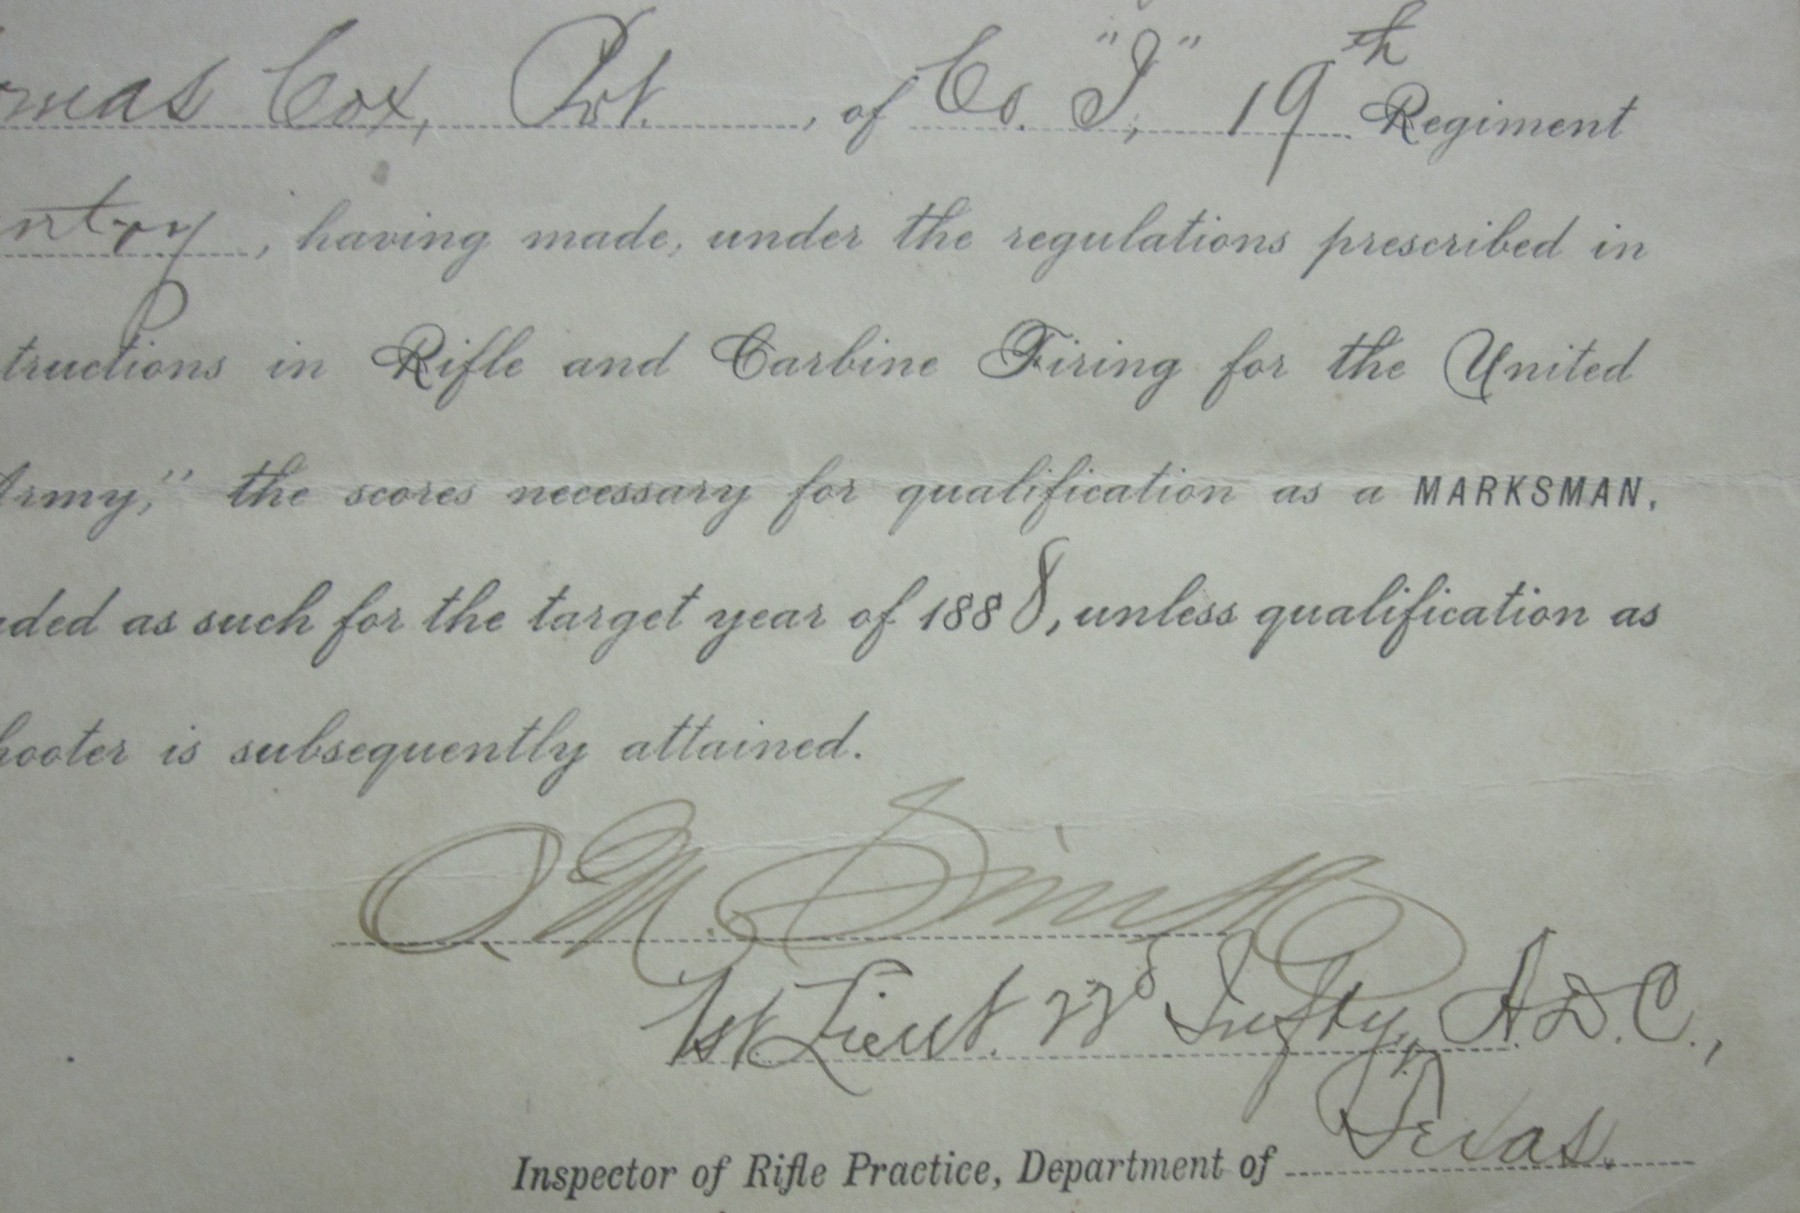 omas Cox, Pvt. , of Co. "I", 19th Regiment
ntry, having made, under the regulations prescribed in
tructions in Rifle and Carbine Firing for the United
Army," the scores necessary for qualification as a MARKSMAN,
ded as such for the target year of 1888, unless qualification as
hooter is subsequently attained.
O. M. Smith
1st Lieut. 22d Infty, A.D.C.,
Texas.
Inspector of Rifle Practice, Department of